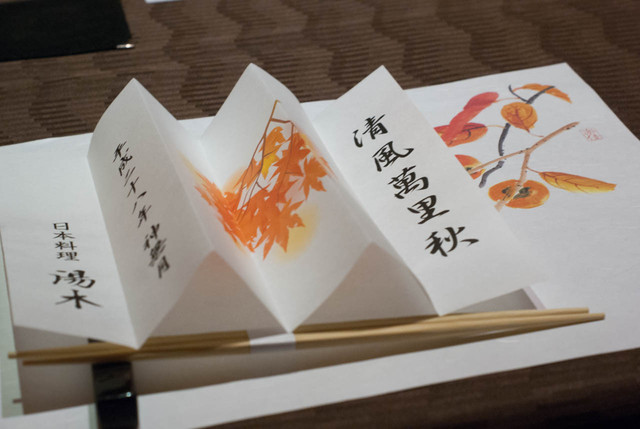 清風萬里秋
平成二十八年神無月
日本料理 湯木